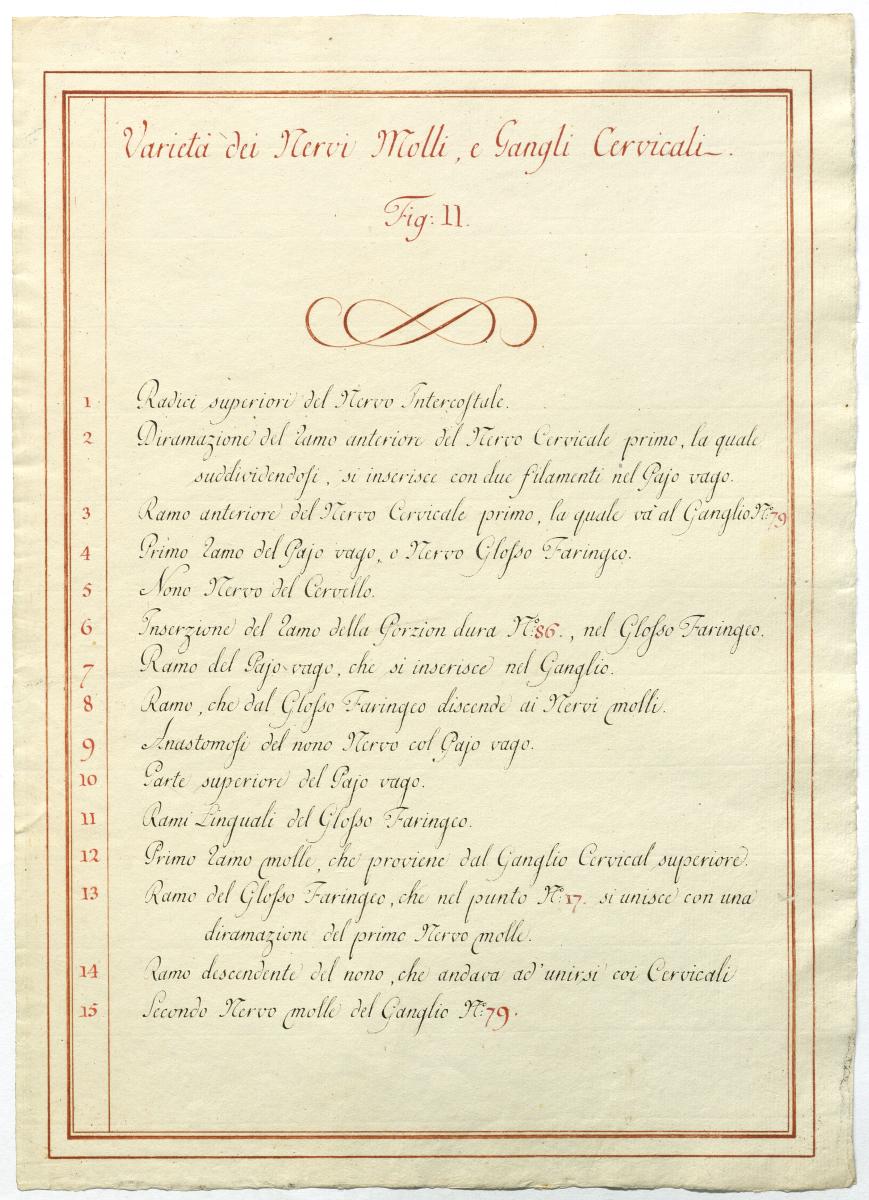 Varietà dei Nervi Molli, e Gangli Cervicali.
Fig: 11.
1 Radici superiori del Nervo Intercostale.
2 Diramazione del ramo anteriore del Nervo Cervicale primo, la quale
suddividendosi, si inserisce con due filamenti nel Pajo vago.
3 Ramo anteriore del Nervo Cervicale primo, la quale và al Ganglio N:º 79
4 Primo ramo del Pajo vago, o Nervo Glosso Faringeo.
5 Nono Nervo del Cervello.
6 Inserzione del ramo della Porzion dura N:º 86., nel Glosso Faringeo.
7 Ramo del Pajo vago, che si inserisce nel Ganglio.
8 Ramo, che dal Glosso Faringeo discende ai Nervi molli.
9 Anastomosi del nono Nervo col Pajo vago.
10 Parte superiore del Pajo vago.
11 Rami Linguali del Glosso Faringeo.
12 Primo ramo molle, che proviene dal Ganglio Cervical superiore.
13 Ramo del Glosso Faringeo, che nel punto N:º 17. si unisce con una
diramazione del primo Nervo molle.
14 Ramo descendente del nono, che andava ad'unirsi coi Cervicali
15 Secondo Nervo molle del Ganglio N:º 79.